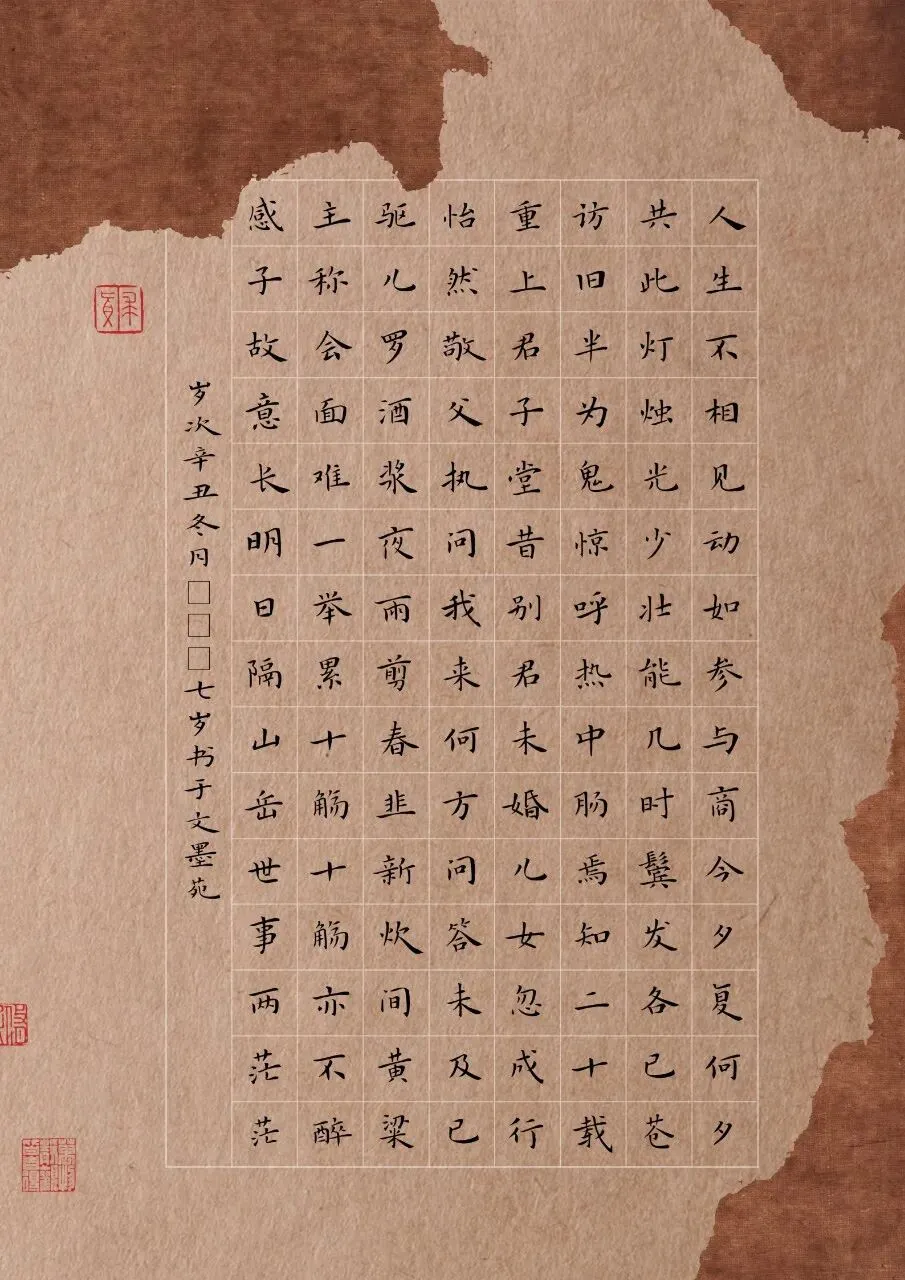 人生不相见动如参与商今夕复何夕
共此灯烛光少壮能几时鬓发各已苍
访旧半为鬼惊呼热中肠焉知二十载
重上君子堂昔别君未婚儿女忽成行
怡然敬父执问我来何方问答未及已
驱儿罗酒浆夜雨剪春韭新炊间黄粱
主称会面难一举累十觞十觞亦不醉
感子故意长明日隔山岳世事两茫茫
岁次辛丑冬月□□□七岁书于文墨苑